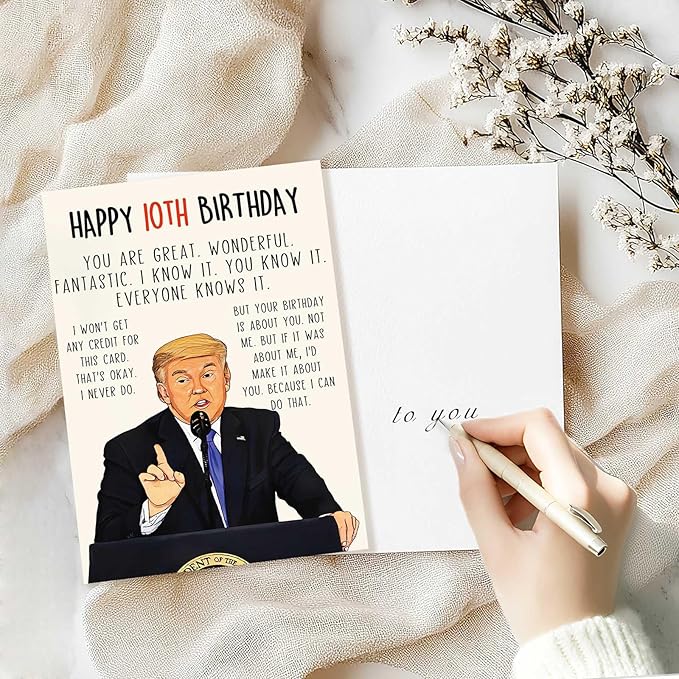 HAPPY 10TH BIRTHDAY
YOU ARE GREAT. WONDERFUL.
FANTASTIC. I KNOW IT. YOU KNOW IT.
EVERYONE KNOWS IT.
I WON'T GET
ANY CREDIT FOR
THIS CARD.
THAT'S OKAY.
I NEVER DO.
BUT YOUR BIRTHDAY
IS ABOUT YOU. NOT
ME. BUT IF IT WAS
ABOUT ME, I'D
MAKE IT ABOUT
YOU. BECAUSE I CAN
DO THAT.
OF THE
to you